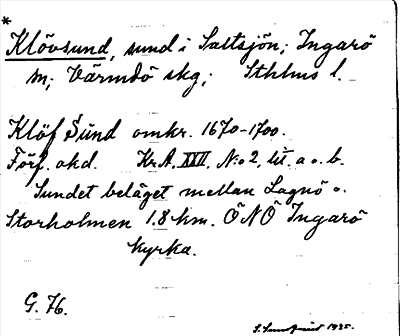 *
Klövsund, sund i Saltsjön; Ingarö
m; Värmdö skg; Sthlms l.
Klöf Sund omkr. 1670-1700.
Förf. okd. Kr.A. XXII, N:o 2, lit. a o. b.
Sundet beläget mellan Lagnö o.
Storholmen 1,8 km. ÖNÖ Ingarö
kyrka.
G. 76.
1935.